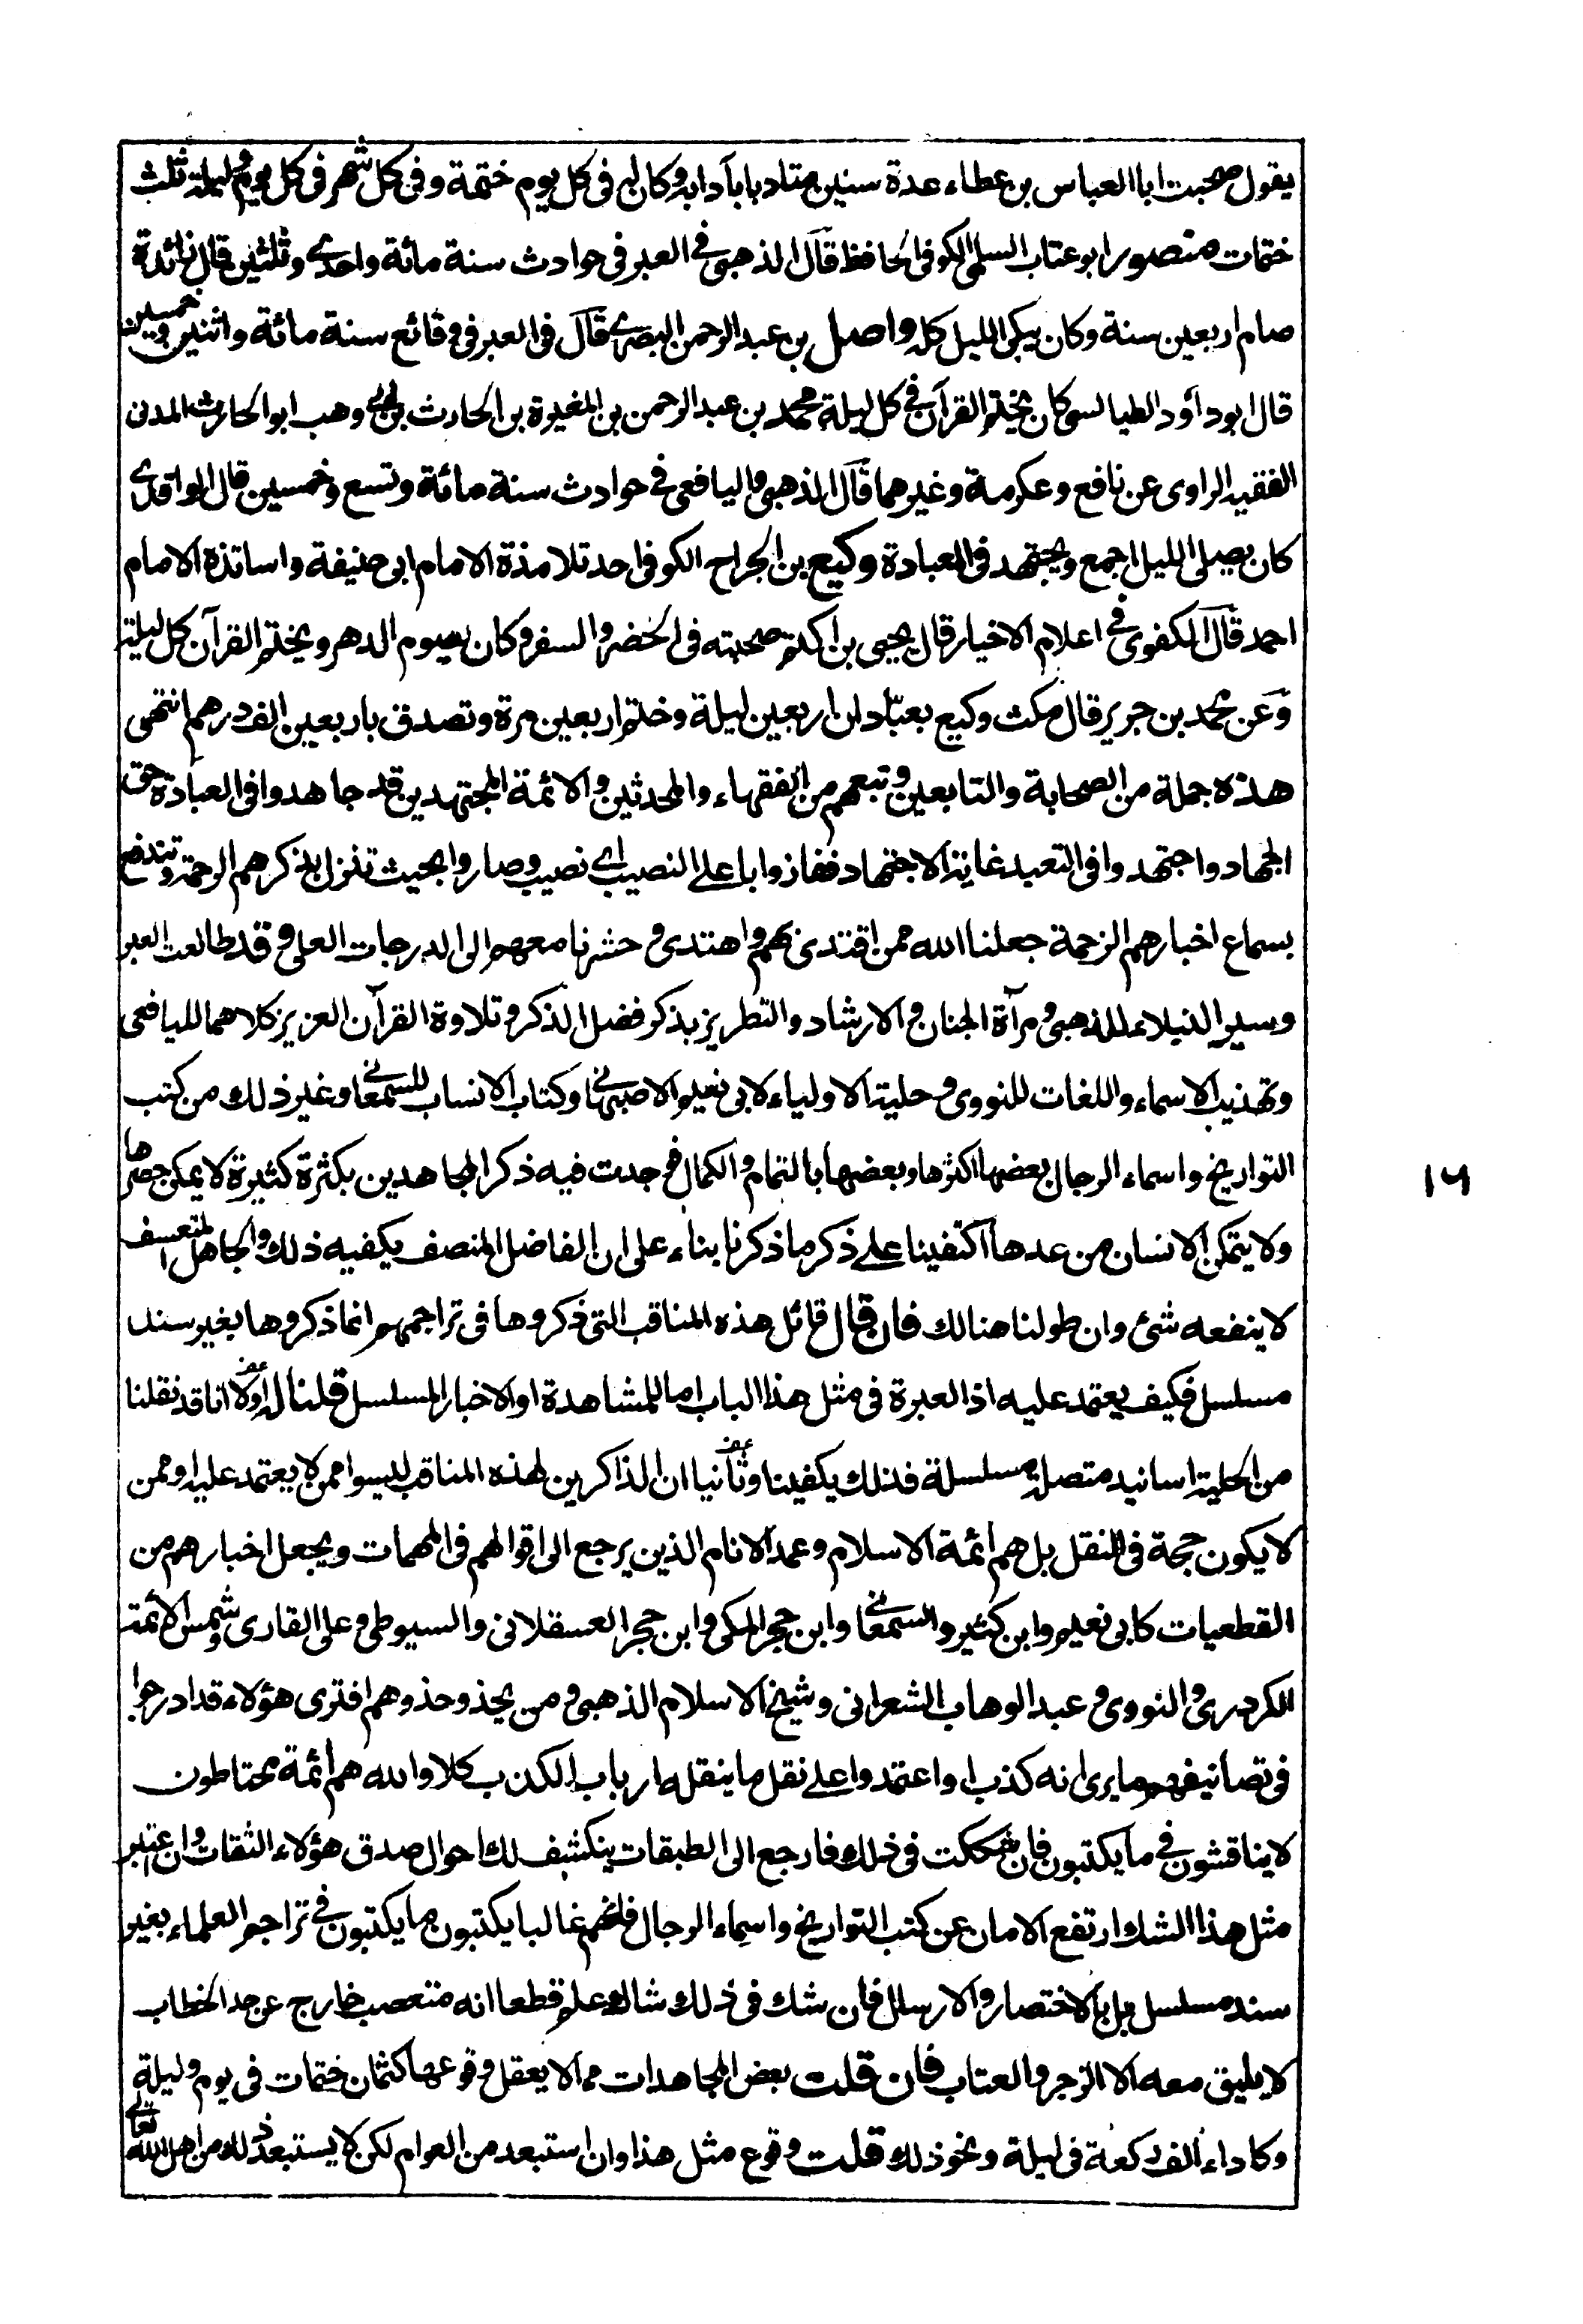 يقول صحبت ابا العباس بن عطاء عدة سنين متادبا بآدابه وكان له فى كل يوم ختمة وفى كل شهر فى كل يوم وليلة ثلث
ختمات منصور ابو عتاب السلمى الكوفى الحافظ قال الذهبى فى العبر فى حوادث سنة مائة واحدى وثلثين قال زائدة
صام اربعين سنة وكان يبكى الليل كله واصل بن عبد الرحمن البصرى قال فى العبر فى وقائع سنة مائة واثنين وخمسين
قال ابو دأود الطيالسى كان يختم القرآن فى كل ليلة محمد بن عبد الرحمن بن المغيرة بن الحارث بن ابى وهب ابو الحارث المدنى
الفقيه الراوى عن نافع وعكرمة وغيرهما قال الذهبى واليافعى فى حوادث سنة مائة وتسع وخمسين قال الواقدى
كان يصلى الليل اجمع ويجتهد فى العبادة وكيع بن الجراح الكوفى احد تلامذة الامام ابى حنيفة واساتذة الامام
احمد قال الكفوى فى اعلام الاخيار قال يحيى بن اكثم صحبته فى الحضر والسفر وكان يصوم الدهر ويختم القرآن كل ليلة
وعن محمد بن جرير قال مكث وكيع بعبّادان اربعين ليلة وختم اربعين مرة وتصدق باربعين الف درهم انتهى
هذه جملة من الصحابة والتابعين وتبعهم من الفقهاء والمحدثين والائمة المجتهدين قد جاهدوا فى العبادة حق
الجهاد واجتهدوا فى التعبد غاية الاجتهاد ففازوا باعلى النصيب اى نصيب وصاروا بحيث تنزل بذكرهم الرحمة وتندفع
بسماع اخبارهم الزحمة جعلنا الله ممن اقتدى بهم واهتدى و حشرنا معهم الى الدرجات العلى وقد طالعت العبر
وسير النبلاء للذهبى ومرآة الجنان والارشاد والتطريز بذكر فضل الذكر وتلاوة القرآن العزيز كلاهما لليافعى
وتهذيب الاسماء واللغات للنووى وحلية الاولياء لابى نعيم الاصبهانى وكتاب الانساب للسمعانى وغير ذلك من كتب
التواريخ واسماء الرجال بعضها اكثرها وبعضها بالتمام والكمال فوجدت فيه ذكر المجاهدين بكثرة كثيرة لا يمكن حصرها
ولا يتمكن الانسان من عدها اكتفينا على ذكر ما ذكرنا بناء على ان الفاضل المنصف يكفيه ذلك والجاهل المتعسف
لا ينفعه شئ وان طولنا هنالك فان قال قائل هذه المناقب التى ذكروها فى تراجمهم انما ذكروها بغير سند
مسلسل فكيف يعتمد عليه اذ العبرة فى مثل هذا الباب اما للمشاهدة او الاخبار المسلسل قلنا له اولا انا قد نقلنا
من الحلية اسانيد متصلة مسلسلة فذلك يكفينا وثانيا ان الذاكرين لهذه المناقب ليسوا ممن لا يعتمد عليه او ممن
لا يكون حجة فى النقل بل هم أئمة الاسلام وعمد الانام الذين يرجع الى اقوالهم فى المهمات ويجعل اخبارهم من
القطعيات كابى نعيم وابن كثير والسمعانى وابن حجر المكى وابن حجر العسقلانى والسيوطى وعلى القارى وشمس الائمة
الكردرى والنووى وعبد الوهاب الشعرانى وشيخ الاسلام الذهبى ومن يحذو حذوهم افترى هؤلاء قد ادرجوا
فى تصانيفهم ما يرى انه كذب او اعتمدوا على نقل ما ينقله ارباب الكذب كلا والله هم أئمة محتاطون
لا يناقشون فى ما يكتبون فان شككت فى ذلك فارجع الى الطبقات ينكشف لك احوال صدق هؤلاء الثقات وان اعتبر
مثل هذا الشك ارتفع الامان عن كتب التواريخ واسماء الرجال فانهم غالبا يكتبون ما يكتبون فى تراجم العلماء بغير
سند مسلسل بل بالاختصار والارسال فان شك فى ذلك شاك علم قطعا انه متعصب خارج عن حد الخطاب
لا يليق معه الا الزجر والعتاب فان قلت بعض المجاهدات مما لا يعقل وقوعها كثمان ختمات فى يوم وليلة
وكاداء الف ركعة فى ليلة ونحو ذلك قلت وقوع مثل هذا وان استبعد من العوام لكن لا يستبعد ذلك من اهل الله تعالى
١٦